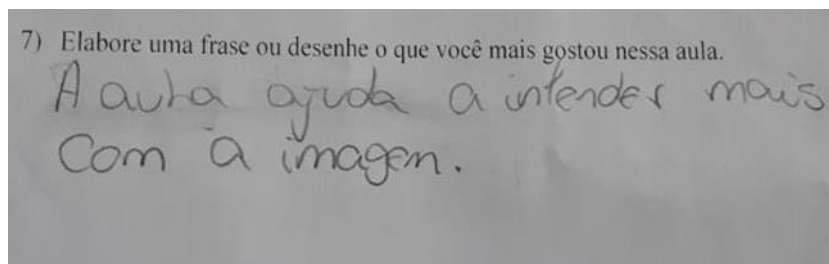 7) Elabore uma frase ou desenhe o que você mais gostou nessa aula.
A aula ajuda a intender mais
Com a imagem.